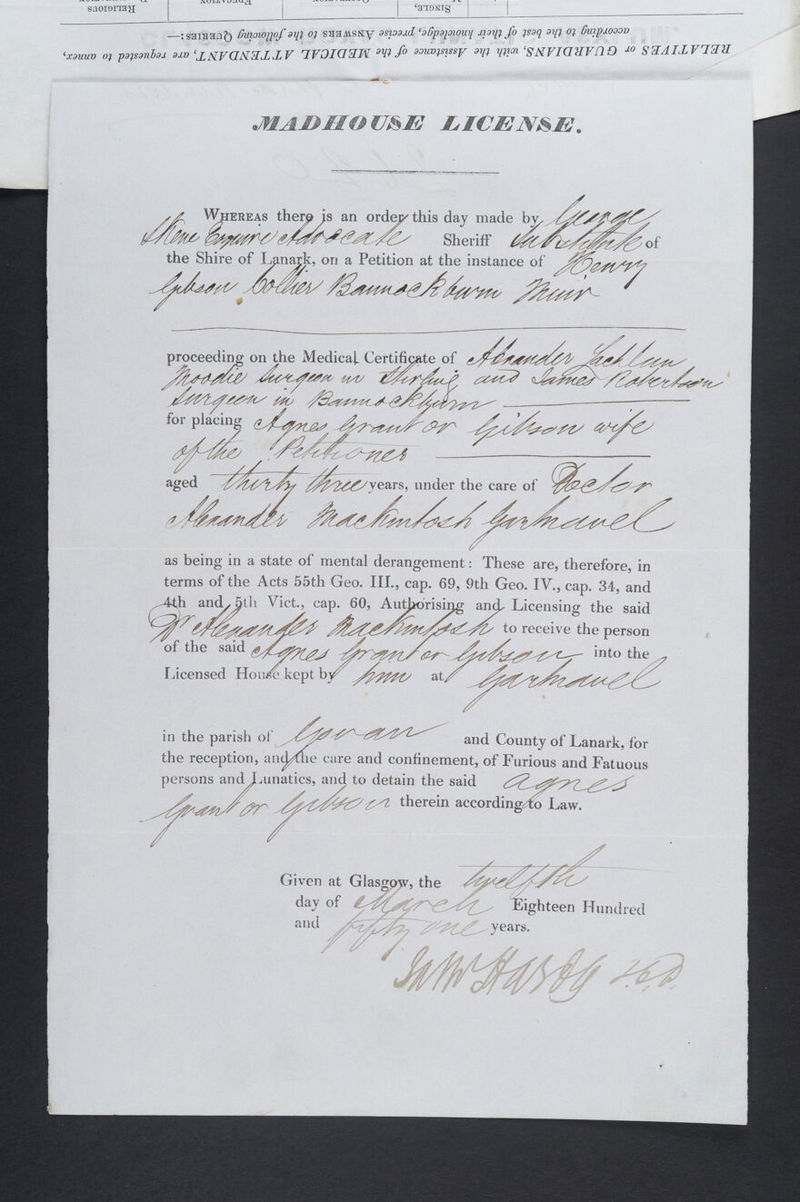 RELATIVES or GUARDIANS, with the Assistance of the MEDICAL ATTENDANT, are requested to annex,
according to the best of their knowledge, precise ANSWERS to the following QUERIES:—
SINGLE,
RELIGIOUS
MADHOUSE LICENSE.
WHEREAS there is an order this day made by George
Skene Esquire Advocate Sheriff Substitute of
the Shire of Lanark, on a Petition at the instance of Henry
Gibson Collier Bannockburn Muir
proceeding on the Medical Certificate of Alexander Lachlan
Moodie Surgeon in Stirling and James Robertson
Surgeon in Bannockburn
for placing Agnes Grant or Gibson wife
of the Petitioner
aged thirty three years, under the care of Doctor
Alexander Mackintosh Gartnavel
as being in a state of mental derangement: These are, therefore, in
terms of the Acts 55th Geo. III., cap. 69, 9th Geo. IV., cap. 34, and
4th and 5th Vict., cap. 60, Authorising and Licensing the said
Dr Alexander Mackintosh to receive the person
of the said Agnes Grant or Gibson into the
Licensed House kept by him at Gartnavel
in the parish of Govan and County of Lanark, for
the reception, and the care and confinement, of Furious and Fatuous
persons and Lunatics, and to detain the said Agnes
Grant or Gibson therein according to Law.
Given at Glasgow, the twelfth
day of March Eighteen Hundred
and fifty one years.